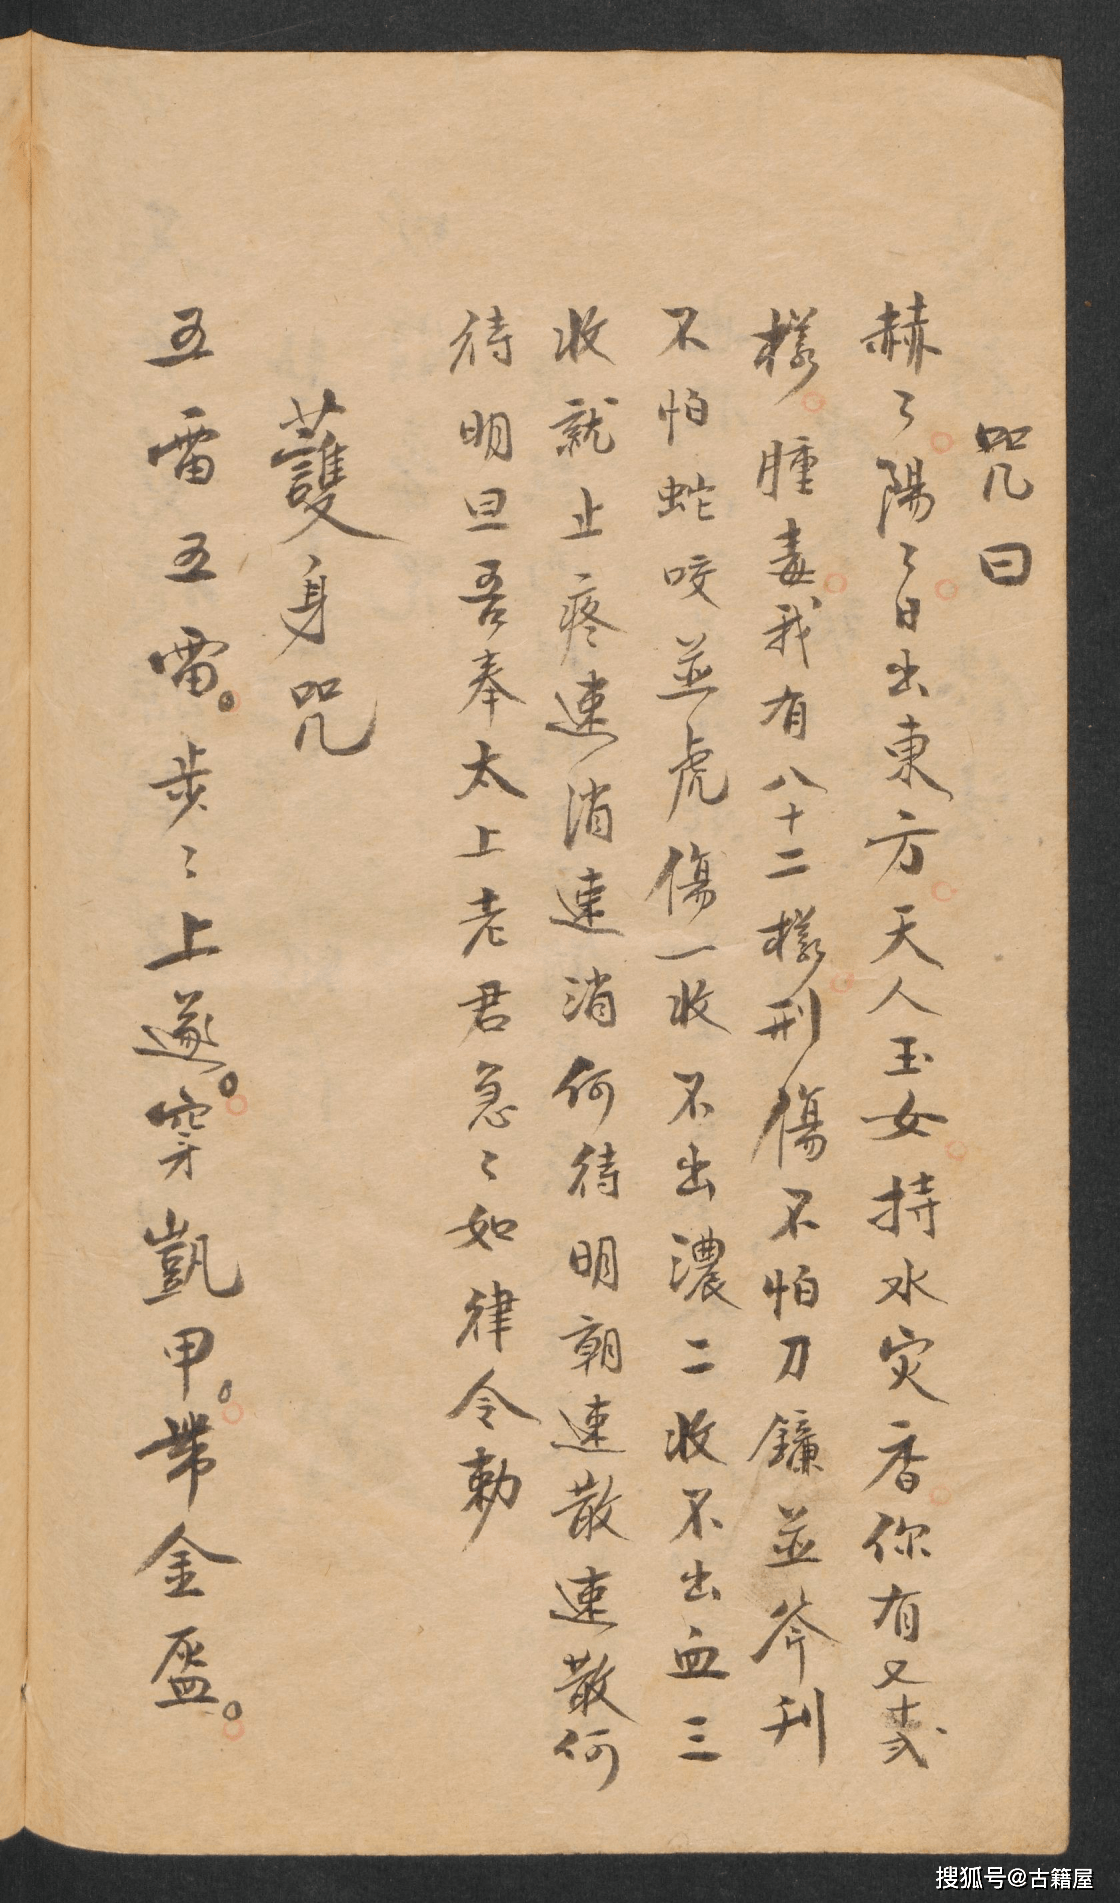 咒曰
赫々陽々日出東方天人玉女持水灾香你有又十弍
樣腫毒我有八十二樣刑傷不怕刀鐮並斧刋
不怕蛇咬並虎傷一收不出濃二收不出血三
收就止疼速消速消何待明朝速散速散何
待明旦吾奉太上老君急々如律令勅
護身咒
五雷五雷。步々上遂。穿凱甲。帶金盔。
搜狐号@古籍屋